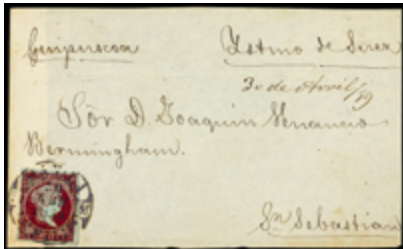 Guipuscoa
Ystmo de Suez
30 de Avril/59
Sôr D. Joaquin Venancio
Bermingham.
Sn Sebastian